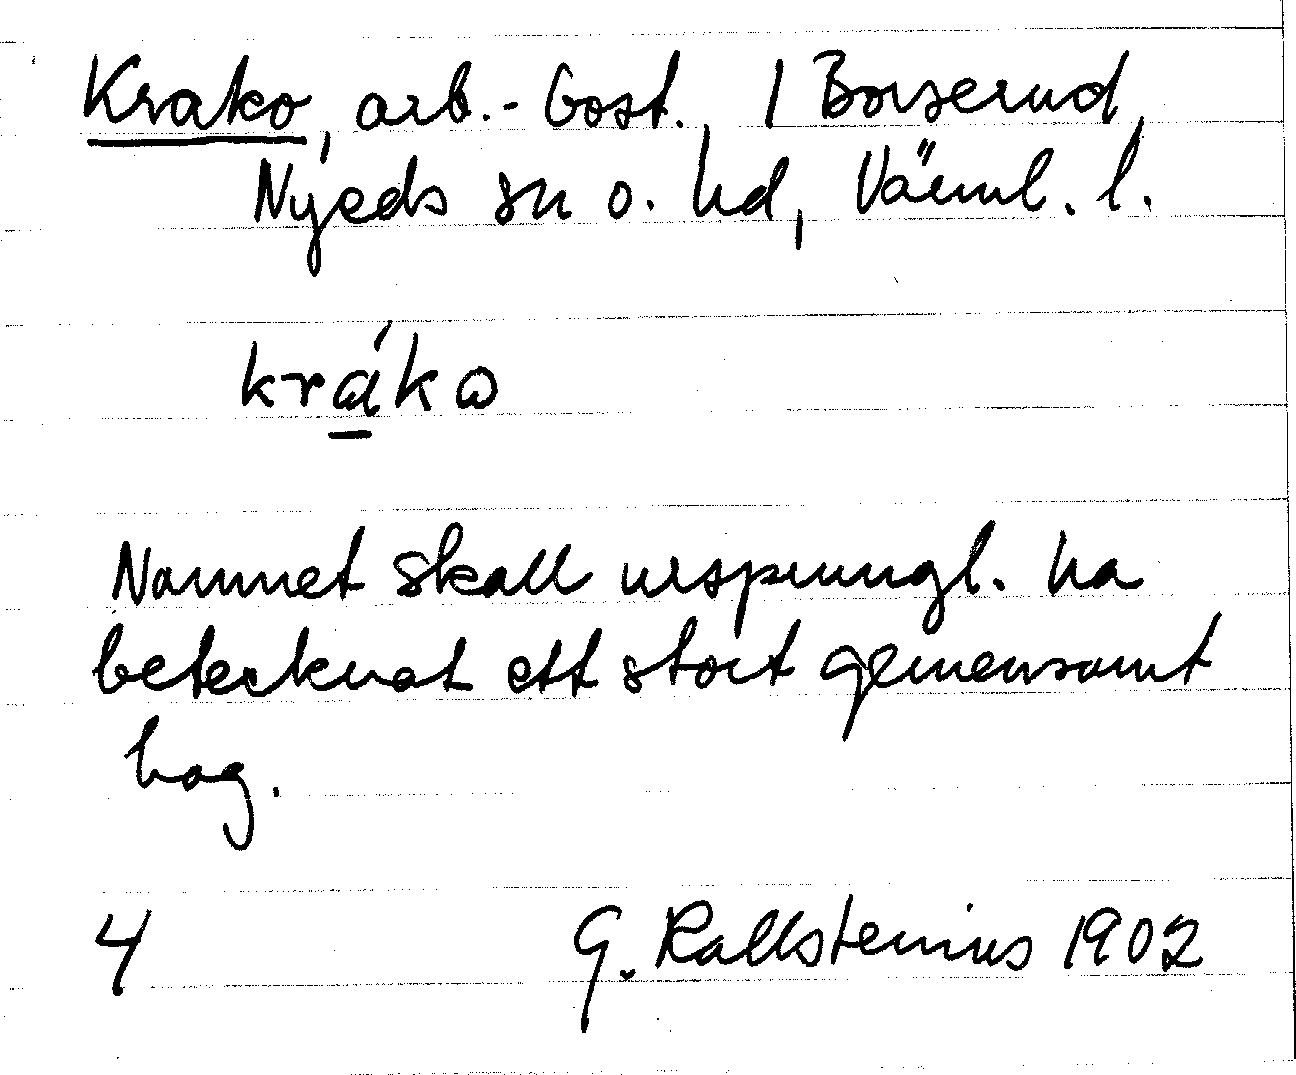 Krako, arb.-bost. / Borserud,
Nyeds sn o. hd, Värml. l.
krák
Namnet skall ursprungl. ha
betecknat ett stort gemensamt
hag.
4 G. Kallstenius 1902